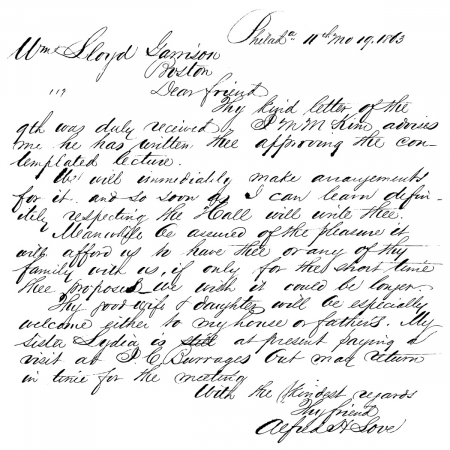 Philada 11th mo 19. 1863
Wm Lloyd Garrison
Boston
Dear friend
Thy kind letter of the
9th was duly received. J M McKim advises
me he has written thee approving the con-
templated lecture.
We will immediately make arrangements
for it. and so soon as I can learn defin-
itely respecting the Hall will write thee.
Meanwhile be assured of the pleasure it
will afford us to have thee or any of thy
family with us, if only for the short time
thee proposed we wish it could be longer.
Thy good wife & daughter will be especially
welcome either to my house or father's. My
sister Lydia is still at present paying a
visit at J C Burrages but may return
in time for the meeting
With the kindest regards
Thy friend
Alfred H Love